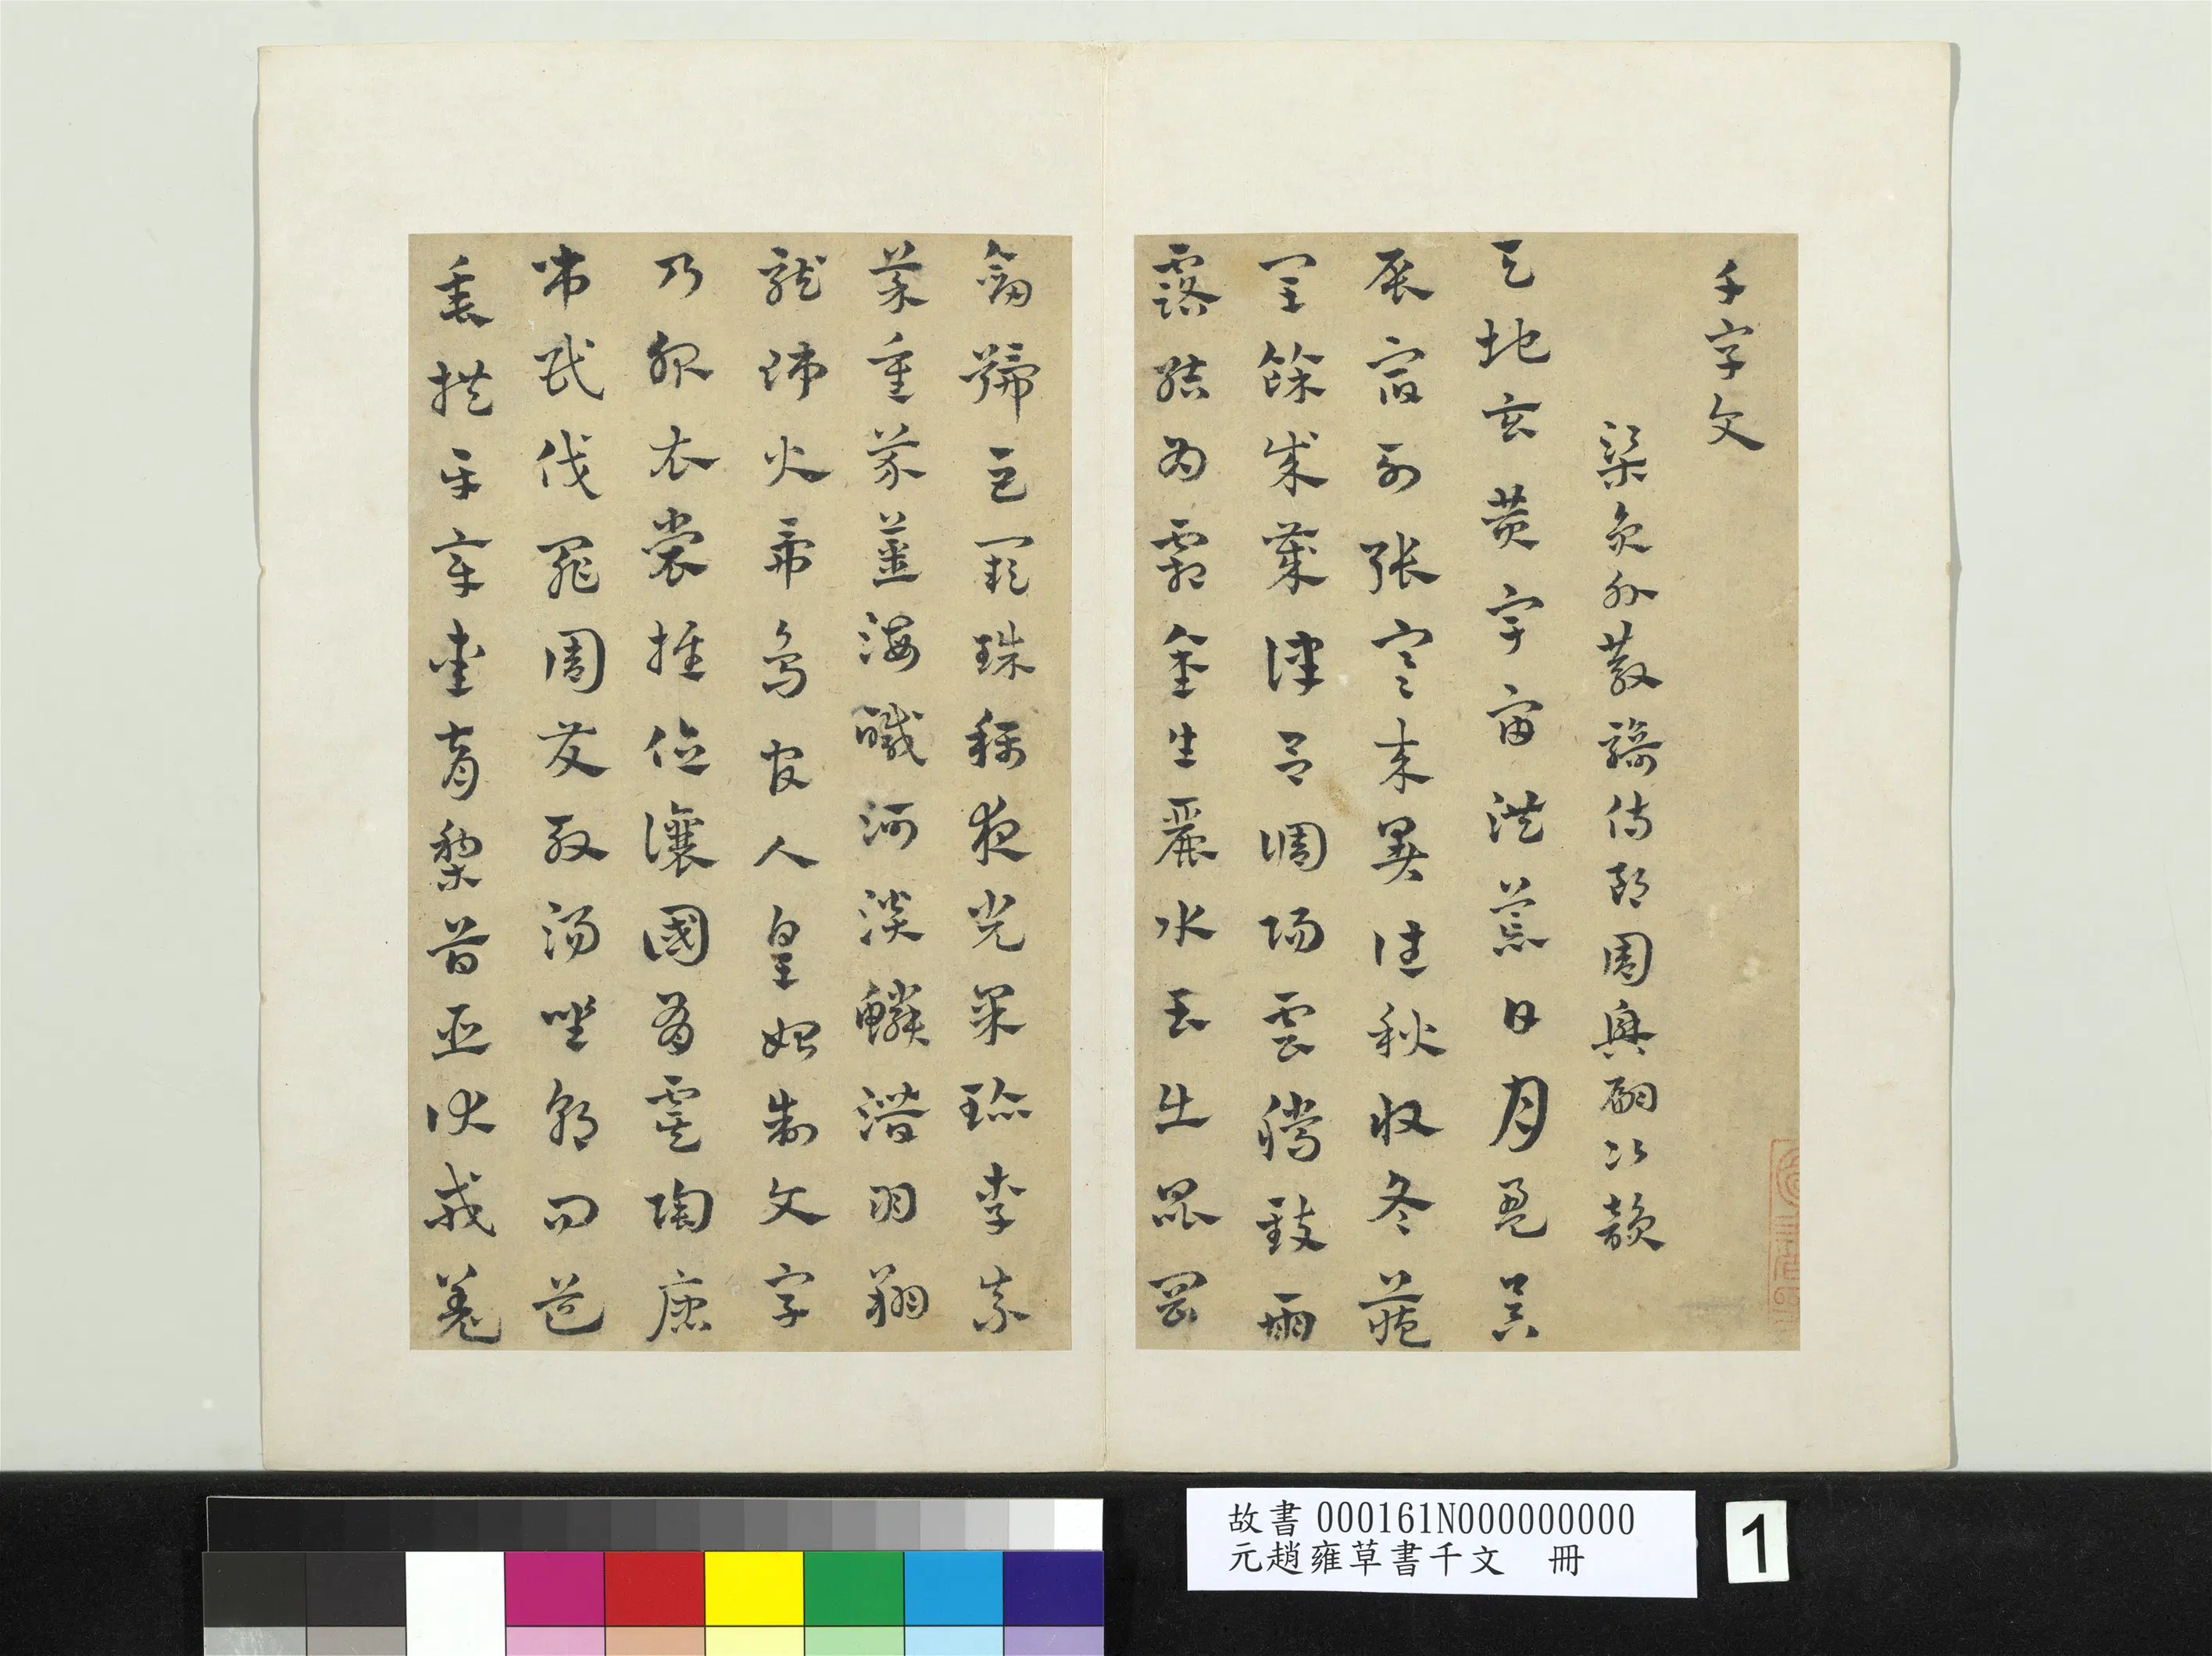 千字文
梁員外散騎侍郎周興嗣次韻
天地玄黃宇宙洪荒日月盈昃
辰宿列張寒來暑往秋收冬藏
閏餘成歲律呂調陽雲騰致雨
露結為霜金生麗水玉出崑岡
劍號巨闕珠稱夜光果珍李柰
菜重芥薑海鹹河淡鱗潛羽翔
龍師火帝鳥官人皇始制文字
乃服衣裳推位讓國有虞陶唐
弔民伐罪周發殷湯坐朝問道
垂拱平章愛育黎首臣伏戎羌
故書000161N000000000
元趙雍草書千文　冊
1